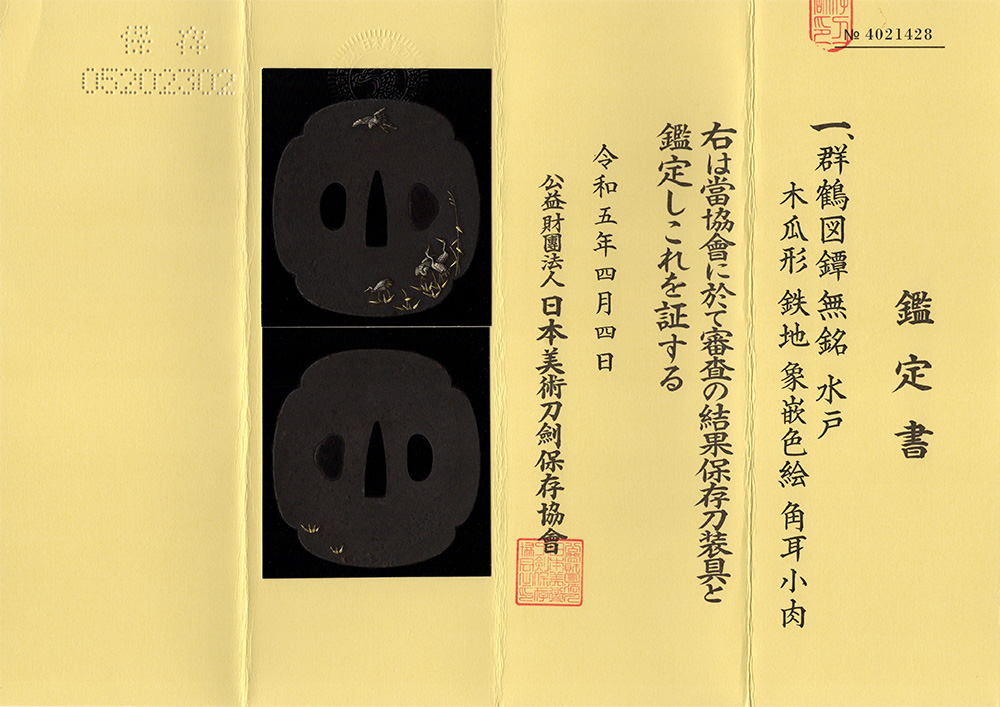 № 4021428
鑑定書
一、群鶴図鐔 無銘 水戸
木瓜形 鉄地 象嵌色絵 角耳小肉
右は當協會に於て審査の結果保存刀装具と
鑑定しこれを証する
令和五年四月四日
公益財團法人 日本美術刀劍保存協會
保存
05202302